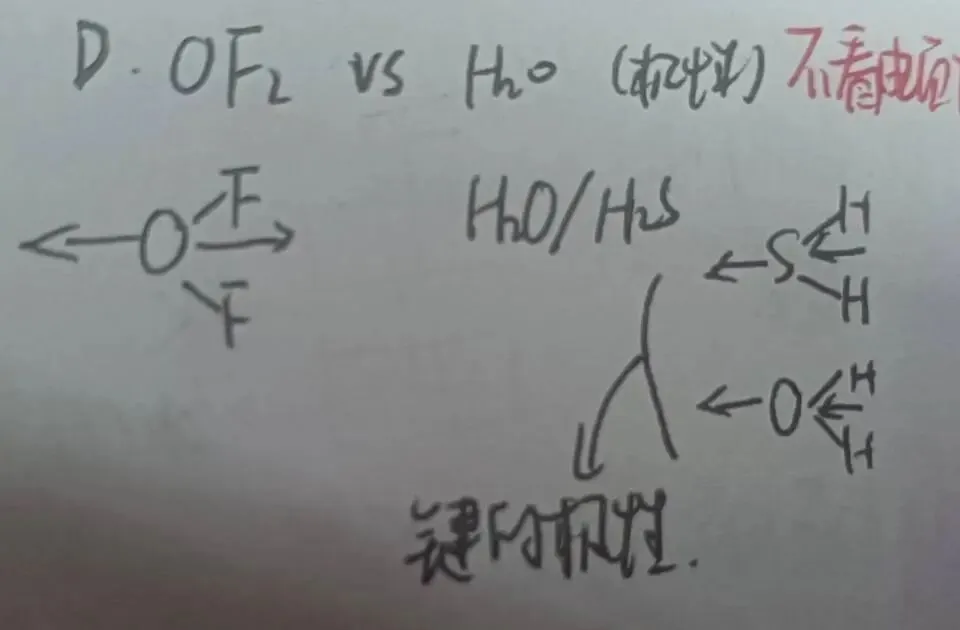 D. OF₂ vs H₂O (极性) 不看电负
F
O
F
H₂O/H₂S
H
S
H
H
O
H
键的极性.